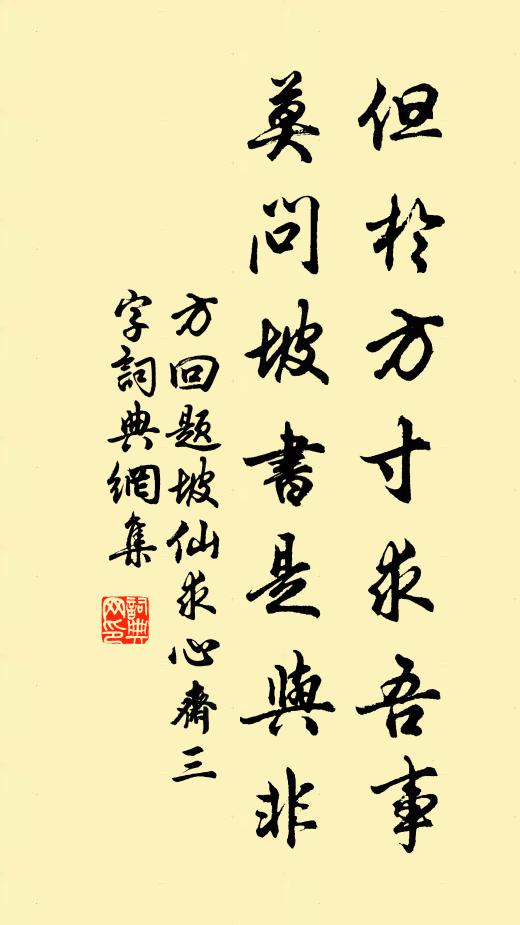 但於方寸求吾事
莫問坡書是與非
方回題坡仙求心齋三
字詞典網集
詞典
网印